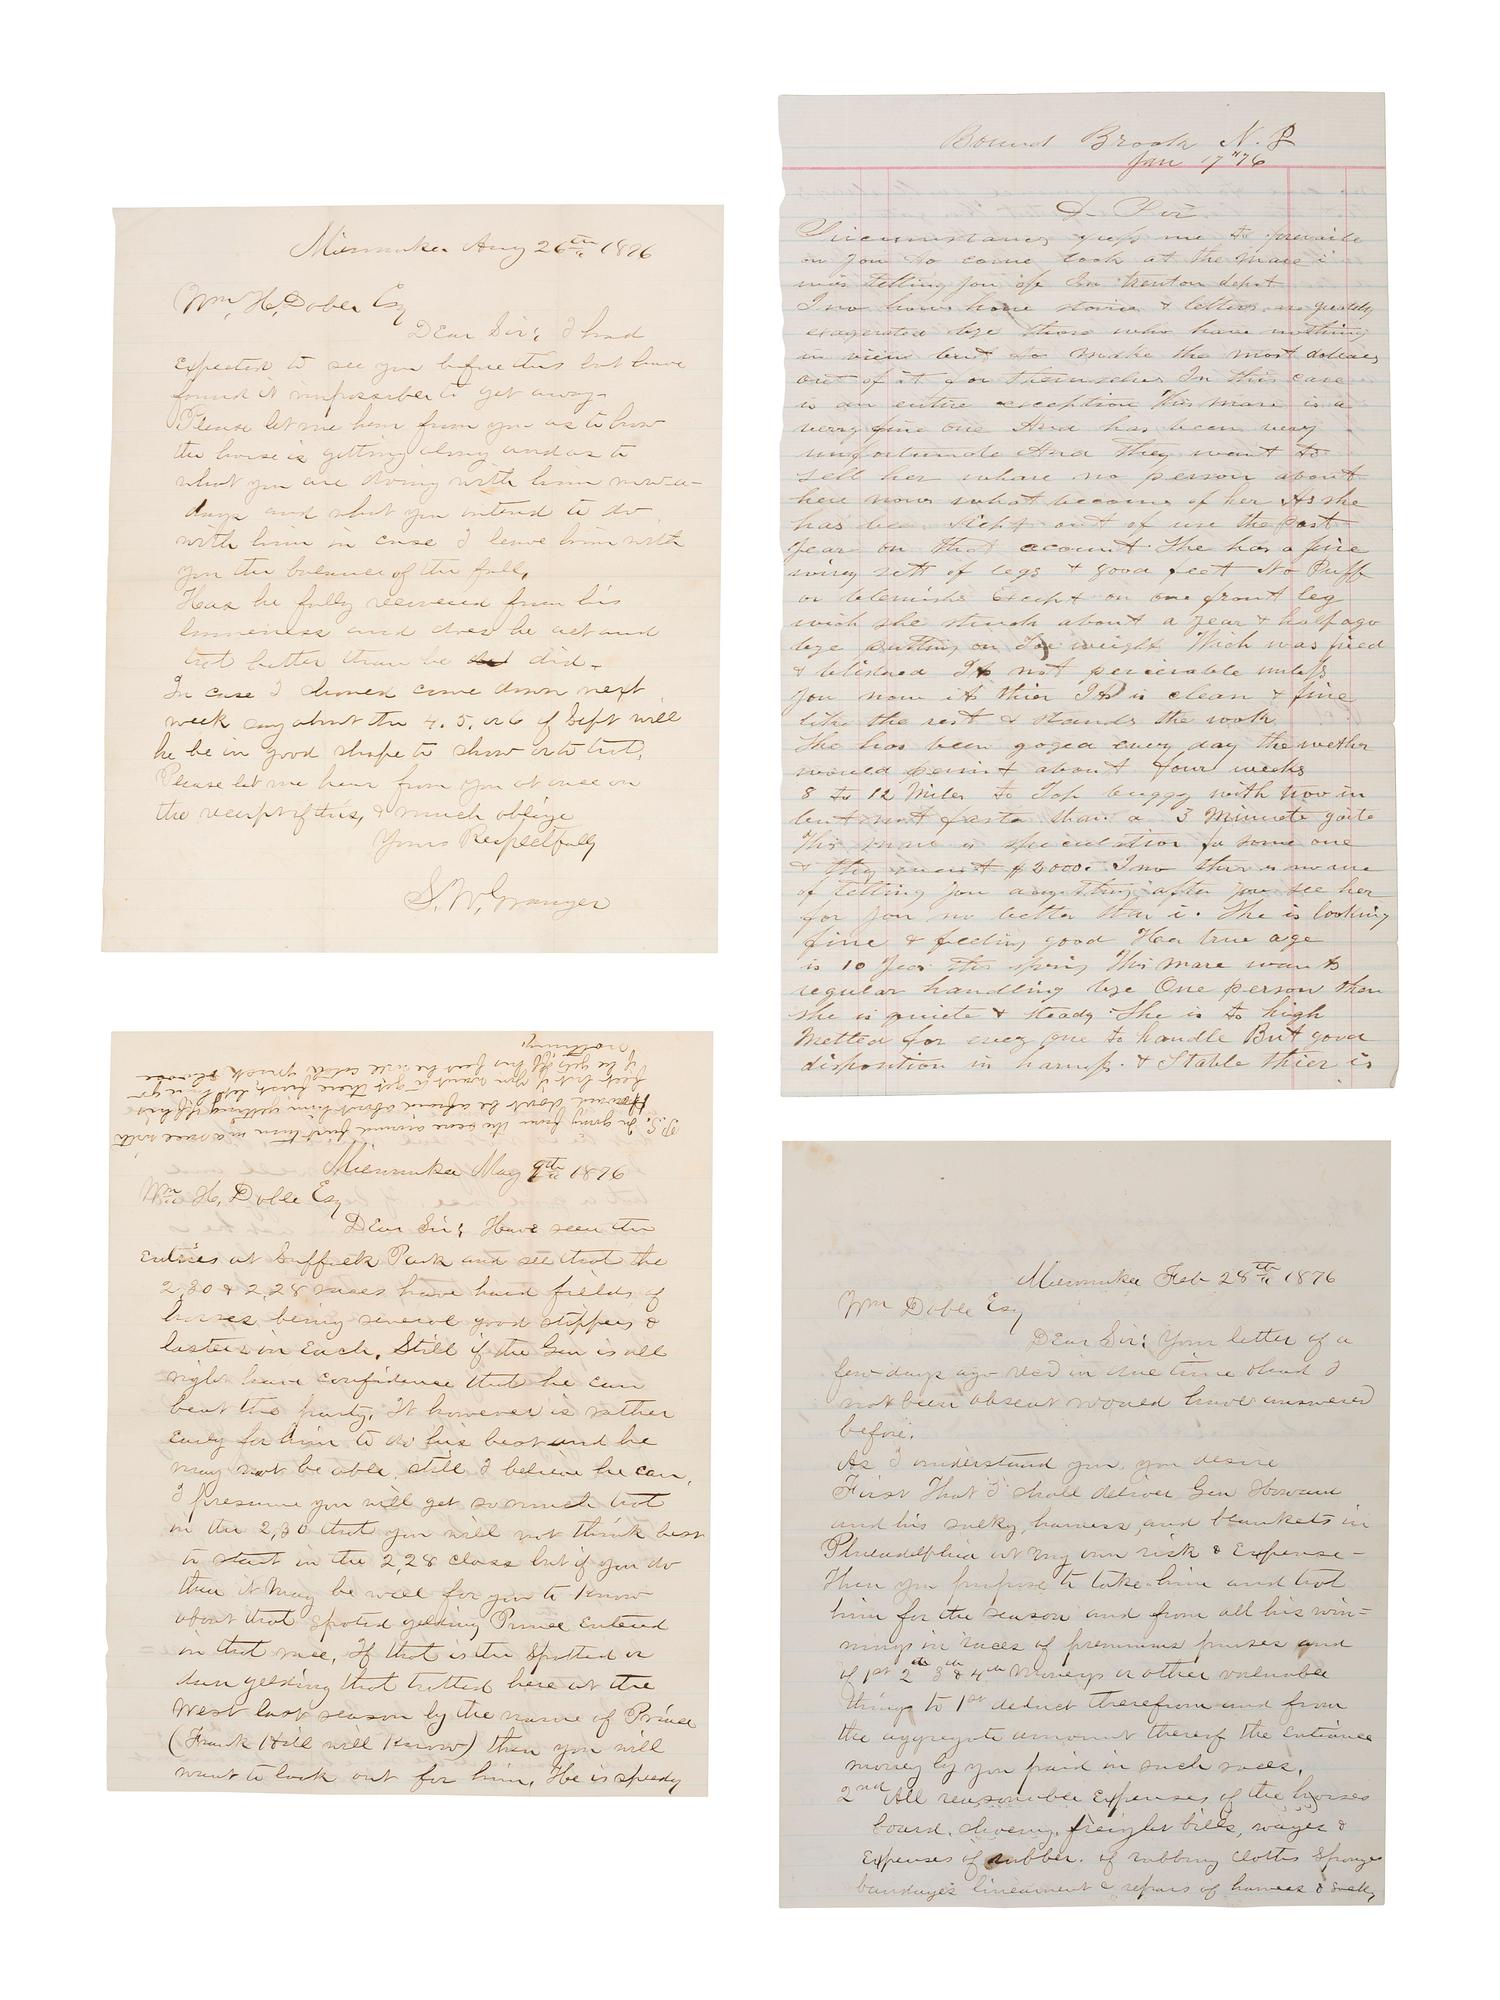 Milwaukee Aug 26th 1876
Wm. H. Doble Esq
Dear Sir; I had
expected to see you before this but have
found it impossible to get away.
Please let me hear from you as to how
the horse is getting along and as to
what you are doing with him now-a-
days and what you intend to do
with him in case I leave him with
you the balance of the fall,
Has he fully recovered from his
lameness and does he act and
trot better than he did-
In case I should come down next
week say about the 4. 5. or 6 of Sept will
he be in good shape to show or to trot.
Please let me hear from you at once on
the receipt of this, & much oblige
Yours Respectfully
S. W. Granger
Bound Brook N. J
Jan 17 "76
D. Sir
Circumstances me to prevaile
on you to come look at the Mare i
was telling you off In trenton depot
I no hows horse stories & letters greatly
exagerated bye those who have nothing
in view but to make the most dollars
out of it for themselves In this case
is an entire exception This mare is a
verry fine one And has been very
unfortunate And they want to
sell her whare no person about
here nows what become of her As she
has been kept out of use the past
year on that account. She has a fine
wirey sett of legs & good feet No Puff
or blemishe Except on one front leg
wich she struck about a year & half ago
bye putting on Toe weight Wich was fired
& blistered Its not perceivable unless
you now its thier Its is clean & fine
like the rest & Stands the work
She has been joged every day the wether
would permit about four weeks
8 to 12 Miles to Top buggy with two in
but not faster than a 3 Minuete gaite
This mare is speculation for some one
& they want $2000. I no ther is no use
of telling you anything after you see her
for you no better than i. She is looking
fine & feeling good Her true age
is 10 Year this spring This mare wants
regular handling bye One person then
she is quiete & steady She is to high
Metted for every one to handle But good
disposition in harness. & Stable thier is
P.S. In going from the score around first turn in a race with
Howard don't be afraid about him getting off his
feet but if you want to get there first, let him go
if he gets off his feet he will catch quick & loose
nothing.
Milwaukee May 9th 1876
Wm H. Doble Esq
Dear Sir; Have seen the
Entries at Suffolk Park and see that the
2,30 & 2,28 races have hard fields of
horses being several good steppers &
lasters in Each. Still if the Gen is all
right have confidence that he can
beat the party. It however is rather
early for him to do his best and he
may not be able, still I believe he can.
I presume you will get so much trot
in the 2,30 that you will not think best
to start in the 2,28 class but if you do
then it may be well for you to know
about that spoted gelding Prince Entered
in that race. If that is the spotted or
dun gelding that trotted here at the
West last season by the name of Prince
(Frank Hill will Know) then you will
want to look out for him. He is speedy
Milwaukee Feb 28th 1876
Wm Doble Esq
Dear Sir: Your letter of a
few days ago recd in due time & had I
not been absent would have answered
before.
As I understand you, you desire
First That I shall deliver Gen Howard
and his sulky, harness, and blankets in
Philadelphia at my own risk & Expense-
Then you propose to take him and trot
him for the season and from all his win=
nings in races of premiums purses and
of 1st 2d 3d & 4th Moneys or other valuable
things to 1st deduct therefrom and from
the aggregate amount thereof the Entrance
money by you paid in such races.
2nd All reasonable Expenses of the horses
board, shoeing, freight bills, wages &
Expenses of rubber. of rubbing cloths Sponges
bandages lineament & repairs of harness & sulky